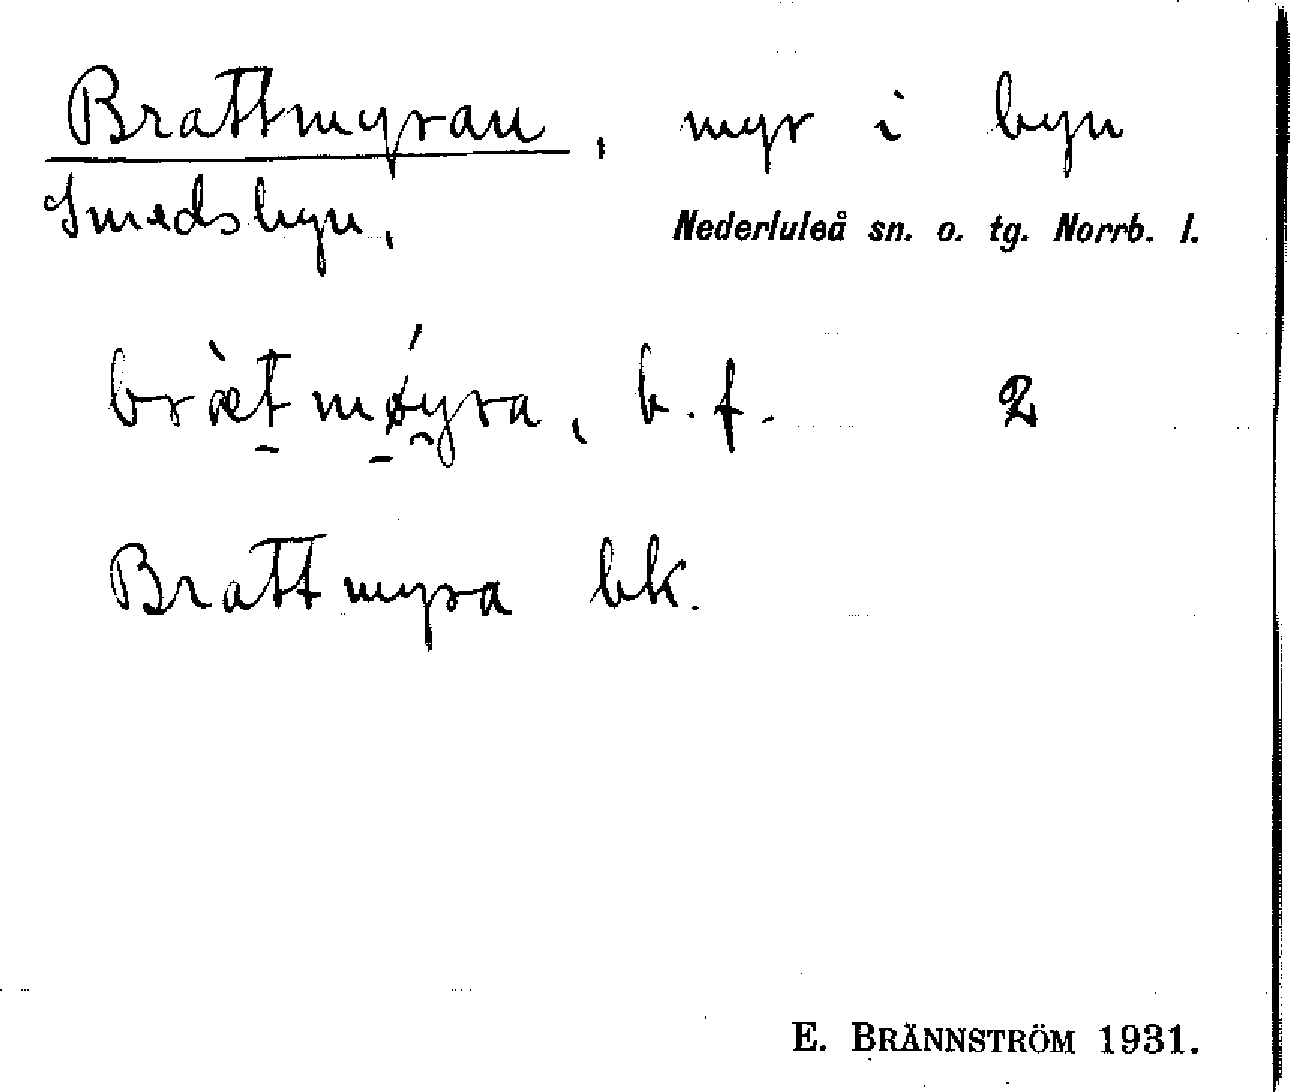 Brattmyran, myr i byn
Smedsbyn, Nederluleå sn. o. tg. Norrb. l.
bræ̀t̠mǿ̠y̯ra, b.f. 2
Brattmyra bk.
E. BRÄNNSTRÖM 1931.